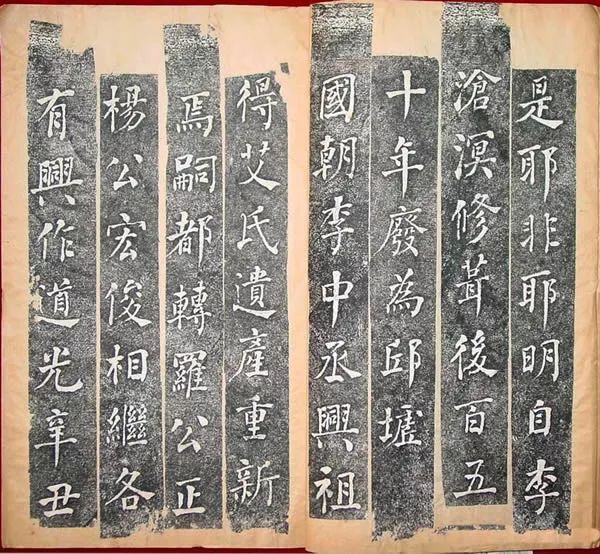 是耶非耶明自李
滄溟修葺後百五
十年廢為邱墟
國朝李中丞興祖
得艾氏遺產重新
焉嗣都轉羅公正
楊公宏俊相繼各
有興作道光辛丑